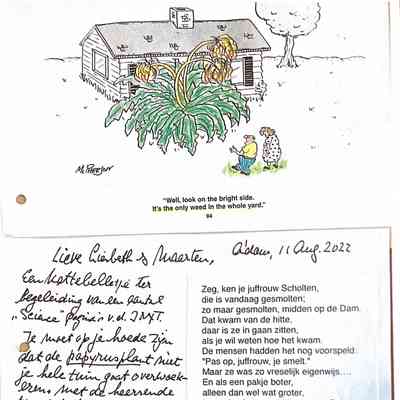 "Well, look on the bright side.
It's the only weed in the whole yard."
94
Lieve Liesbeth & Maarten, A'dam, 11 Aug. 2022
Een
ter
begeleiding van een aantal
"Science" pagina's v.d. INXT.
Je moet op je hoede zijn
dat de papyrusplant niet
je hele tuin gaat overwoek-
eren, met de heersende
Zeg, ken je juffrouw Scholten,
die is vandaag gesmolten;
zo maar gesmolten, midden op de Dam.
Dat kwam van de hitte,
daar is ze in gaan zitten,
als je wil weten hoe het kwam.
De mensen hadden het nog voorspeld:
"Pas op, juffrouw, je smelt."
Maar ze was zo vreselijk eigenwijs....
En als een pakje boter,
alleen dan wel wat groter,